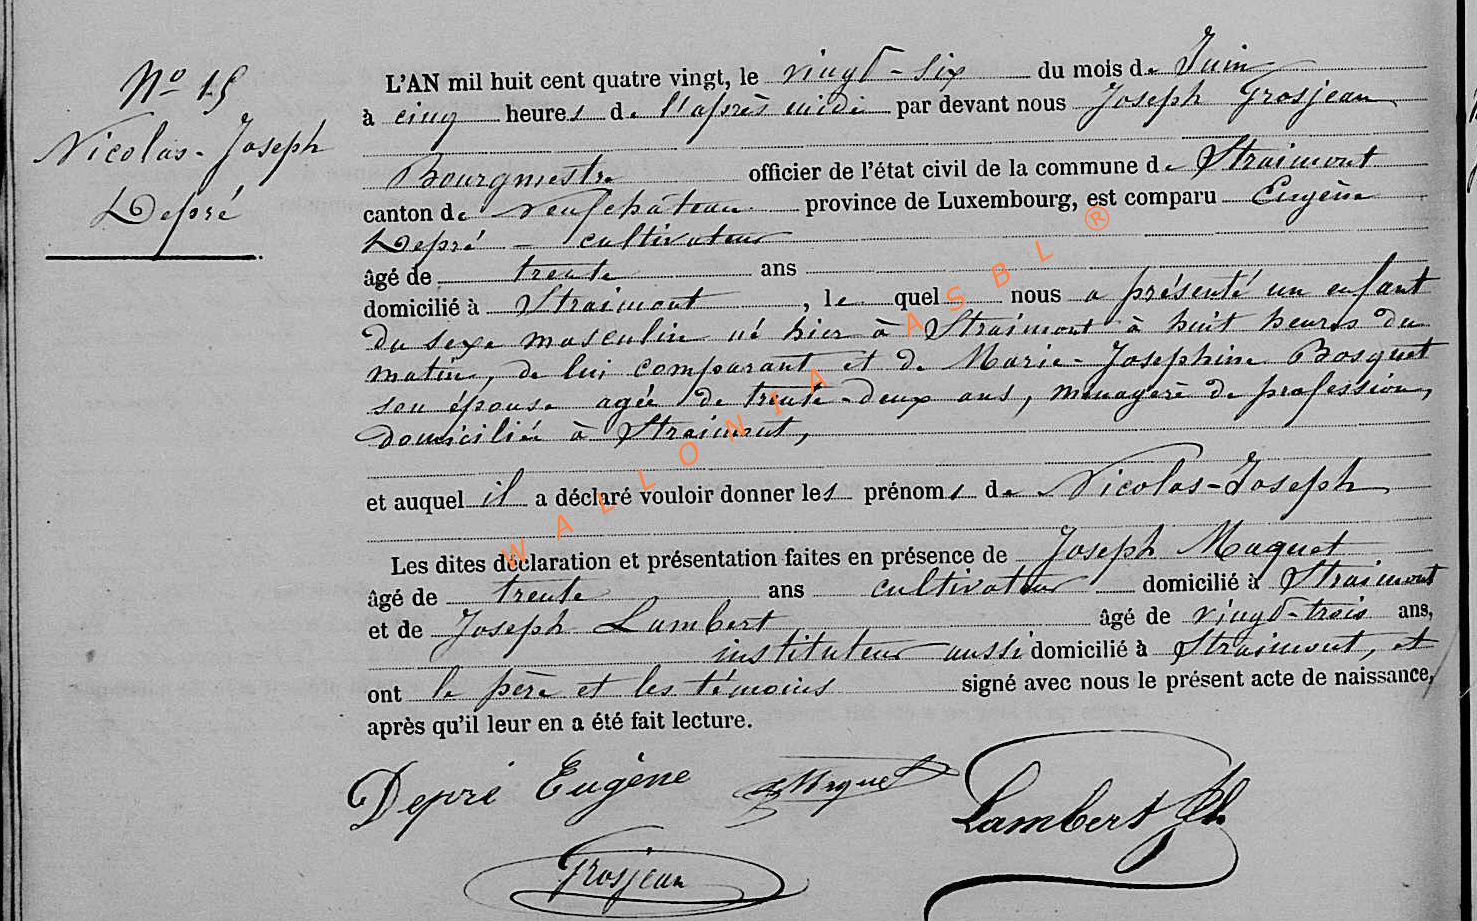 Nº 15
Nicolas-Joseph
Depré
L'AN mil huit cent quatre vingt, le vingt-six du mois de Juin
à cinq heures de l'après midi par devant nous Joseph Grosjean
Bourgmestre officier de l'état civil de la commune de Straimont
canton de Neufchâteau province de Luxembourg, est comparu Eugène
Depré - cultivateur
âgé de trente ans
domicilié à Straimont, le quel nous a présenté un enfant
du sexe masculin né hier à Straimont à huit heures du
matin, de lui comparant et de Marie-Josephine Bosquet
son épouse agée de trente-deux ans, ménagère de profession,
domiciliée à Straimont,
et auquel il a déclaré vouloir donner les prénoms de Nicolas-Joseph
Les dites déclaration et présentation faites en présence de Joseph Maquet
âgé de trente ans cultivateur domicilié à Straimont
et de Joseph Lambert âgé de vingt-trois ans,
instituteur aussi domicilié à Straimont, et
ont le père et les témoins signé avec nous le présent acte de naissance,
après qu'il leur en a été fait lecture.
Depré Eugène Maquet Lambert Jh
Grosjean
WALLONIA ASBL ®